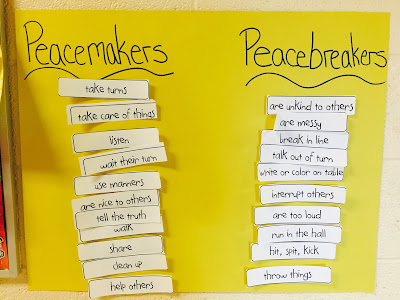 Peacemakers
take turns
take care of things
listen
wait their turn
use manners
are nice to others
tell the truth
walk
share
clean up
help others
Peacebreakers
are unkind to others
are messy
break in line
talk out of turn
write or color on table
interrupt others
are too loud
run in the hall
hit, spit, kick
throw things